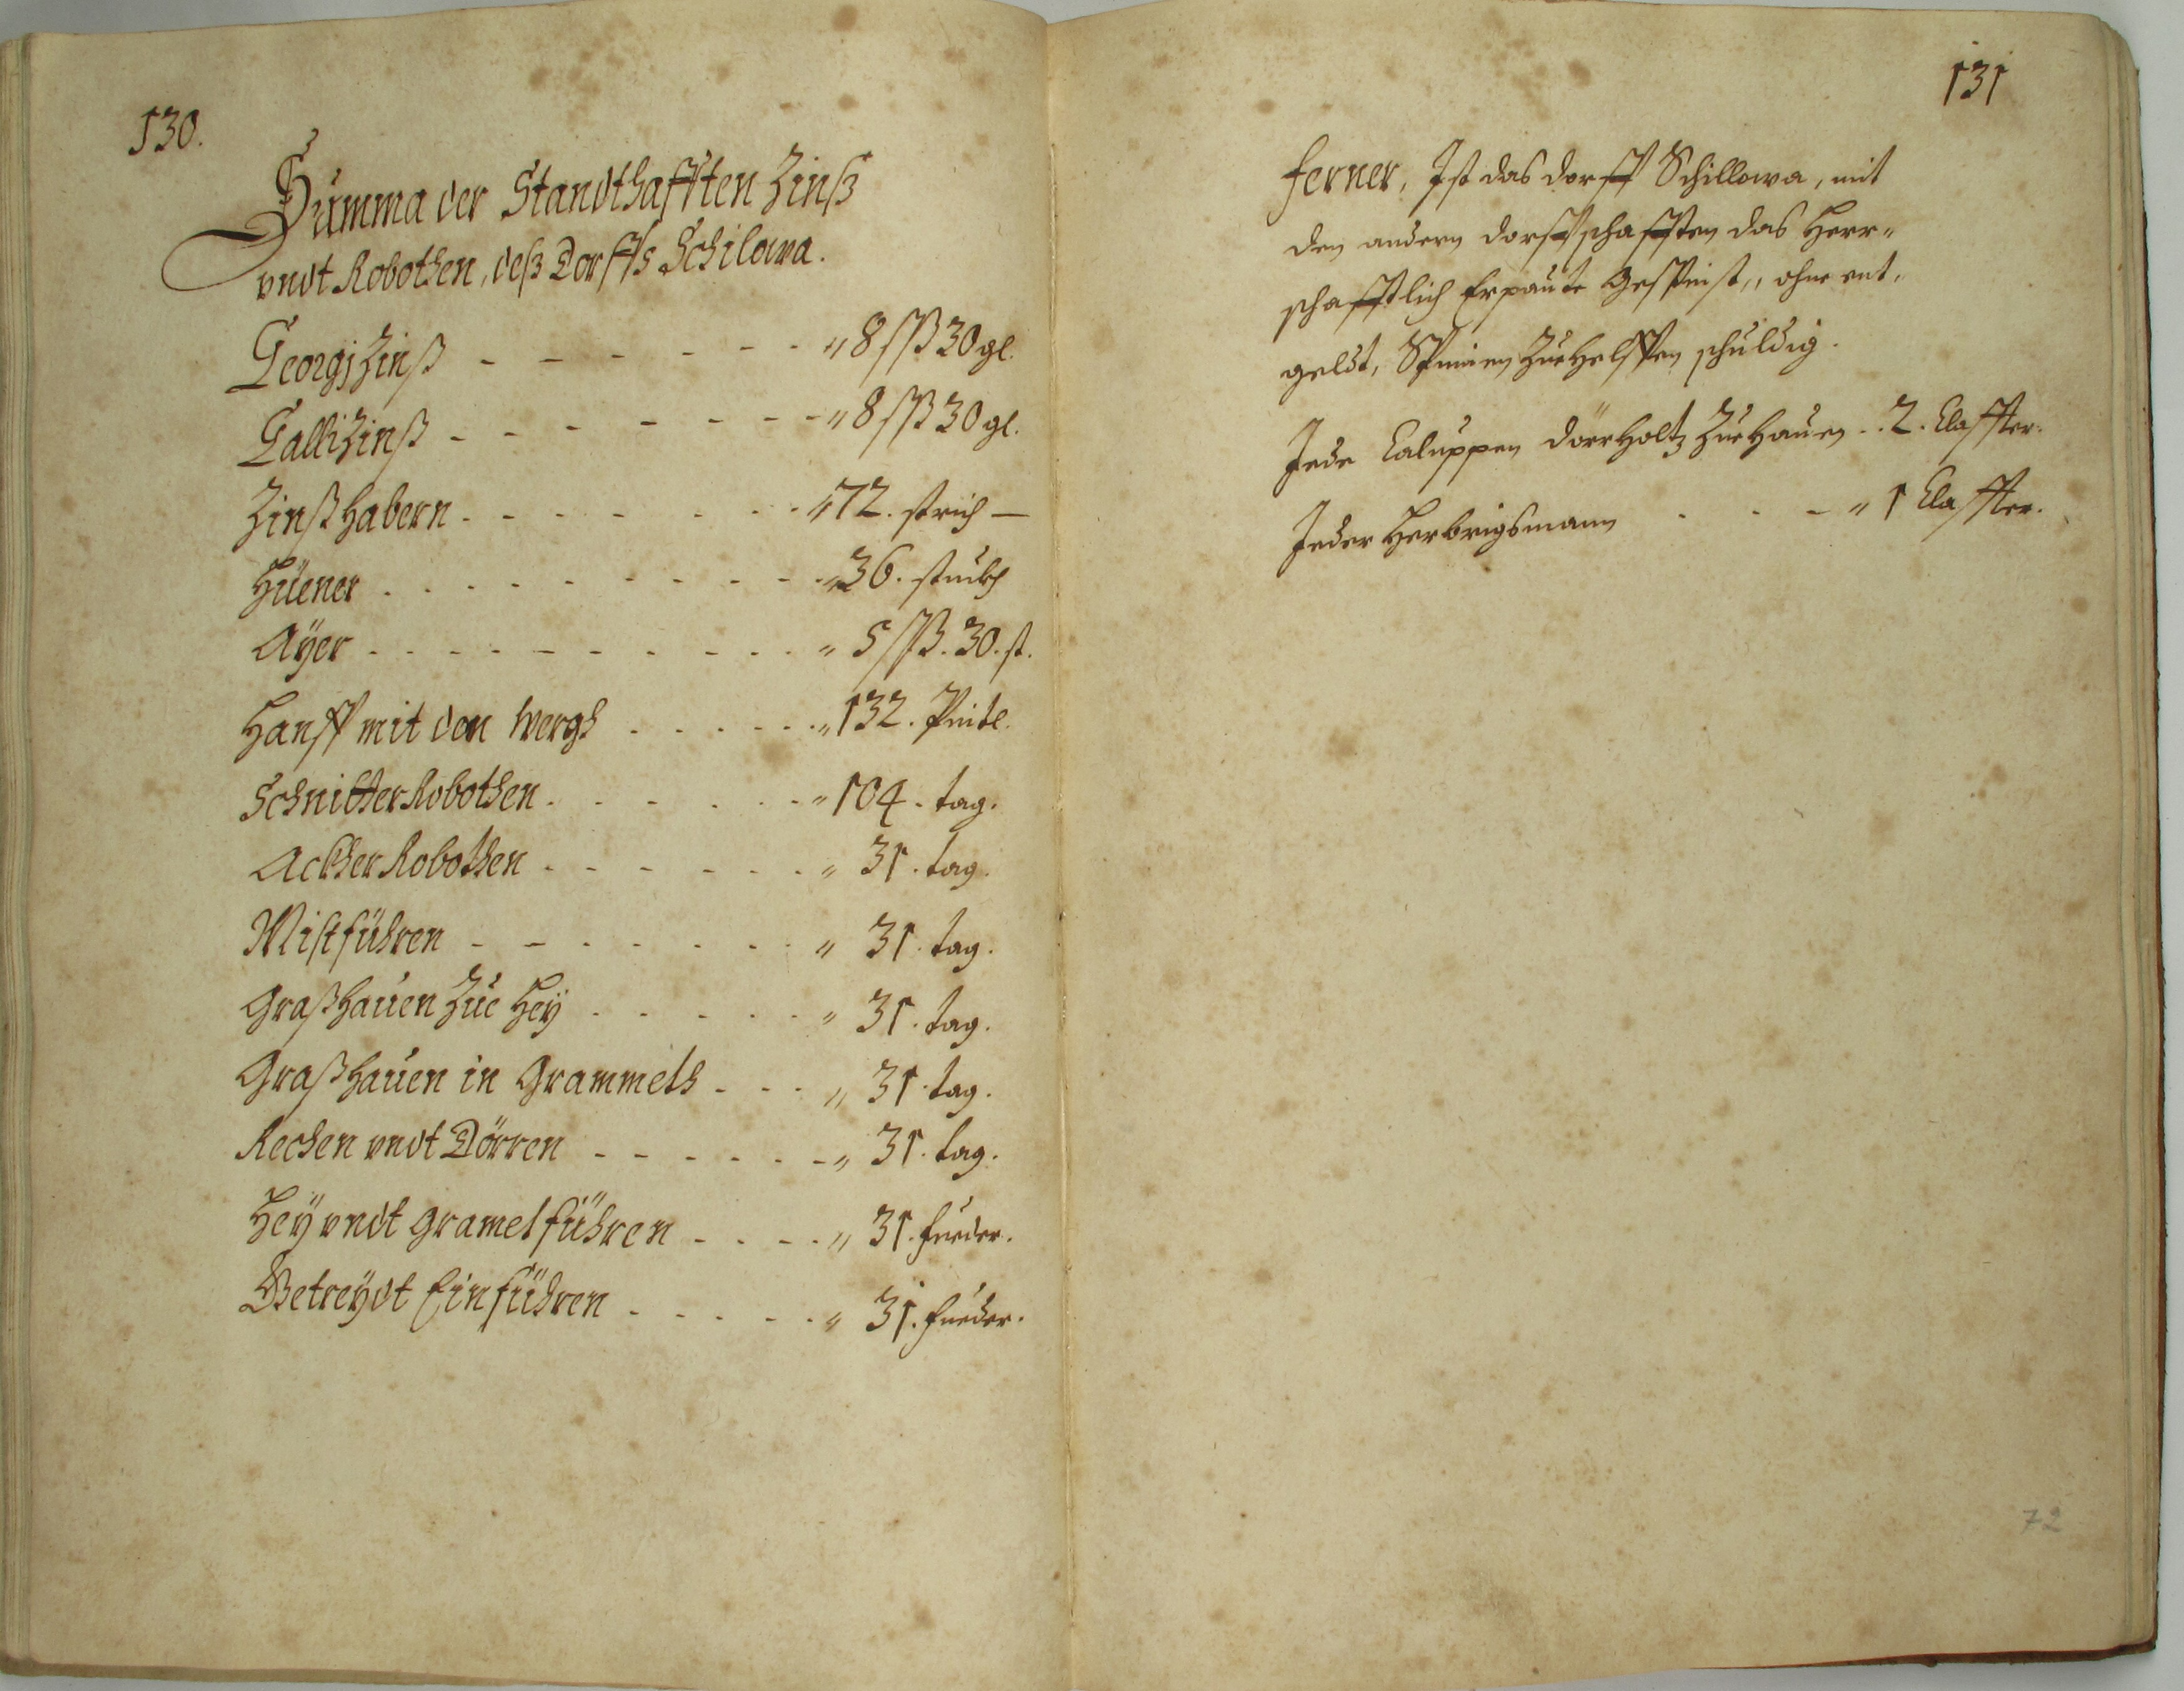 130.
Summa der Standthafften Zinß
vndt Robothen, deß Dorffs Schilowa.
Georgj Zinß - - - - - - - „ 8 ſſß 30 gl.
Galli Zinß - - - - - - - „ 8 ſſß 30 gl.
Zinß habern - - - - - - - „ 72. strich —
Hüener - - - - - - - - - „ 36. stuckh
Aÿer - - - - - - - - - - „ 5 ſſß. 30. st.
Hanff mit den Wergh - - - - - „ 132. Pintl.
Schnitter Robothen - - - - - - „ 104. tag.
Ackher Robothen - - - - - - „ 31. tag.
Mistführen - - - - - - - „ 31. tag.
Graßhauen Zue Heÿ - - - - - „ 31. tag.
Graßhauen in Grammeth - - - „ 31. tag.
Rechen vndt Dörren - - - - - - „ 31. tag.
Heÿ vndt Gramet führen - - - - „ 31. fueder.
Getreÿdt Einführen - - - - - „ 31. fueder.
131
ferner, Ist das dorff Schillowa, mit
den andern dorffschafften das Herr„
schafftlich Erpaute Gespinst,, ohne ent„
geldt, Spinnen Zue Helffen schuldig.
Jede Caluppen dörrholtz Zue Hauen - . 2. Claffter.
Jeder Herbrigsmann - - - „ 1 Claffter.
72